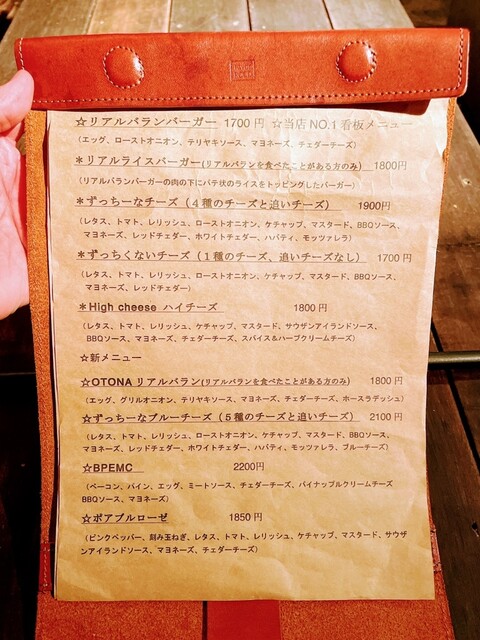 ☆リアルバランバーガー 1700円 ☆当店NO.1看板メニュー
(エッグ、ローストオニオン、テリヤキソース、マヨネーズ、チェダーチーズ)
＊リアルライスバーガー(リアルバランを食べたことがある方のみ) 1800円
(リアルバランバーガーの肉の下にパテ状のライスをトッピングしたバーガー)
＊ずっちーなチーズ（４種のチーズと追いチーズ） 1900円
(レタス、トマト、レリッシュ、ローストオニオン、ケチャップ、マスタード、BBQソース、
マヨネーズ、レッドチェダー、ホワイトチェダー、ハバティ、モッツァレラ)
＊ずっちくないチーズ（１種のチーズ、追いチーズなし） 1700円
(レタス、トマト、レリッシュ、ローストオニオン、ケチャップ、マスタード、BBQソース、
マヨネーズ、レッドチェダー)
＊High cheese ハイチーズ 1800円
(レタス、トマト、レリッシュ、ケチャップ、マスタード、サウザンアイランドソース、
BBQソース、マヨネーズ、チェダーチーズ、スパイス&ハーブクリームチーズ)
☆新メニュー
☆OTONAリアルバラン(リアルバランを食べたことがある方のみ) 1800円
(エッグ、グリルオニオン、テリヤキソース、マヨネーズ、チェダーチーズ、ホースラデッシュ)
☆ずっちーなブルーチーズ（５種のチーズと追いチーズ） 2100円
(レタス、トマト、レリッシュ、ローストオニオン、ケチャップ、マスタード、BBQソース、
マヨネーズ、レッドチェダー、ホワイトチェダー、ハバティ、モッツァレラ、ブルーチーズ)
☆BPEMC 2200円
(ベーコン、パイン、エッグ、ミートソース、チェダーチーズ、パイナップルクリームチーズ
BBQソース、マヨネーズ)
☆ポアブルローゼ 1850円
(ピンクペッパー、刻み玉ねぎ、レタス、トマト、レリッシュ、ケチャップ、マスタード、サウザ
ンアイランドソース、マヨネーズ、チェダーチーズ)